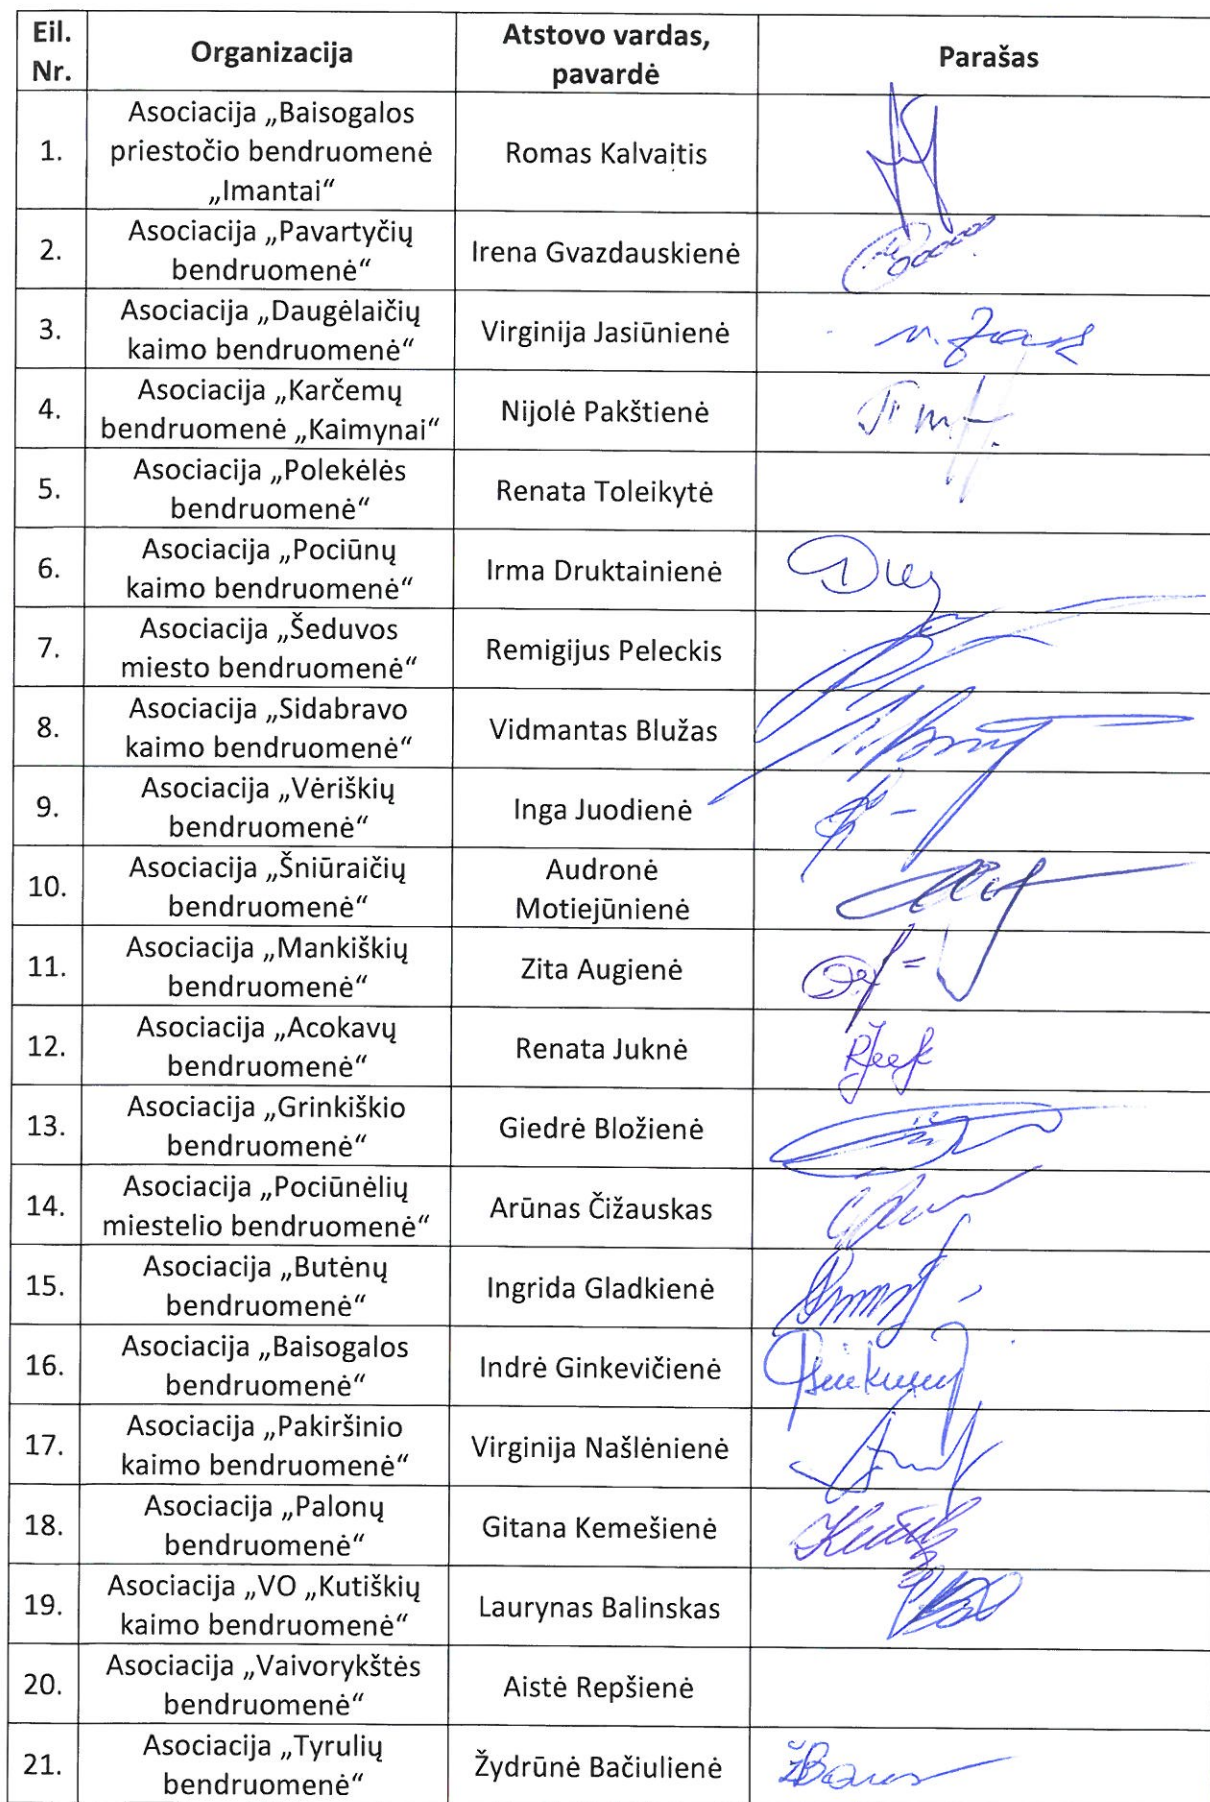 Eil. Nr. Organizacija Atstovo vardas, pavardė Parašas
1. Asociacija „Baisogalos priestočio bendruomenė „Imantai“ Romas Kalvaitis
2. Asociacija „Pavartyčių bendruomenė“ Irena Gvazdauskienė
3. Asociacija „Daugėlaičių kaimo bendruomenė“ Virginija Jasiūnienė
4. Asociacija „Karčemų bendruomenė „Kaimynai“ Nijolė Pakštienė
5. Asociacija „Polekėlės bendruomenė“ Renata Toleikytė
6. Asociacija „Pociūnų kaimo bendruomenė“ Irma Druktainienė
7. Asociacija „Šeduvos miesto bendruomenė“ Remigijus Peleckis
8. Asociacija „Sidabravo kaimo bendruomenė“ Vidmantas Blužas
9. Asociacija „Vėriškių bendruomenė“ Inga Juodienė
10. Asociacija „Šniūraičių bendruomenė“ Audronė Motiejūnienė
11. Asociacija „Mankiškių bendruomenė“ Zita Augienė
12. Asociacija „Acokavų bendruomenė“ Renata Juknė
13. Asociacija „Grinkiškio bendruomenė“ Giedrė Bložienė
14. Asociacija „Pociūnėlių miestelio bendruomenė“ Arūnas Čižauskas
15. Asociacija „Butėnų bendruomenė“ Ingrida Gladkienė
16. Asociacija „Baisogalos bendruomenė“ Indrė Ginkevičienė
17. Asociacija „Pakiršinio kaimo bendruomenė“ Virginija Našlėnienė
18. Asociacija „Palonų bendruomenė“ Gitana Kemešienė
19. Asociacija „VO „Kutiškių kaimo bendruomenė“ Laurynas Balinskas
20. Asociacija „Vaivorykštės bendruomenė“ Aistė Repšienė
21. Asociacija „Tyrulių bendruomenė“ Žydrūnė Bačiulienė